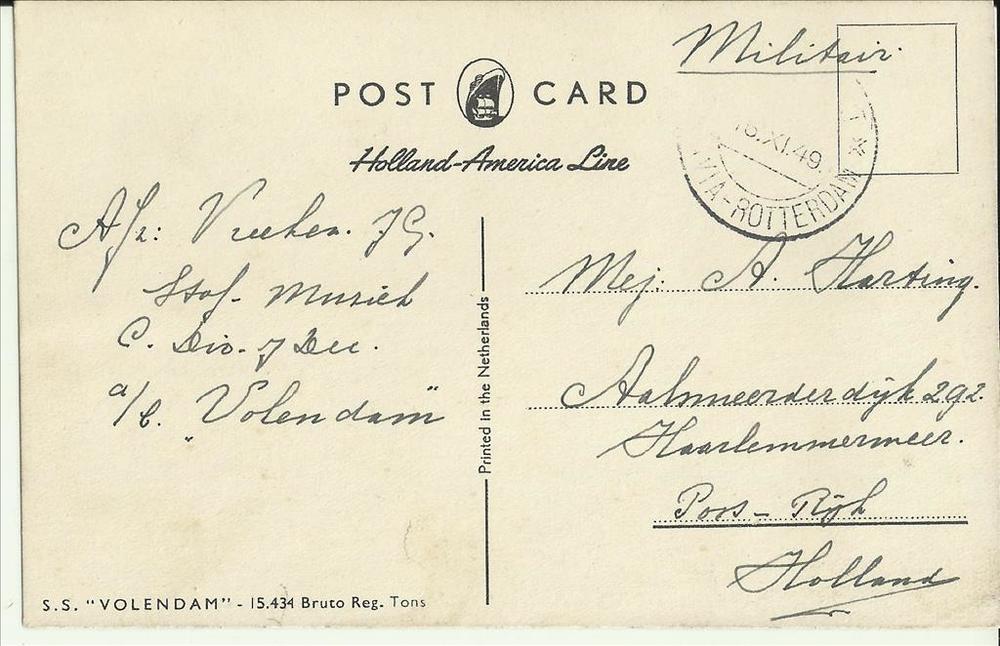 Militair
POST CARD
Holland-America Line
.XI.49.
VIA-ROTTERDAM
T *
Afz: J G.
Staf- Muziek
C. Div. 7 Dec.
a/b. "Volendam"
Printed in the Netherlands
Mej: A. Harting.
Aalsmeerderdijk 292.
Haarlemmermeer.
Holland
S.S. "VOLENDAM" - 15.434 Bruto Reg. Tons